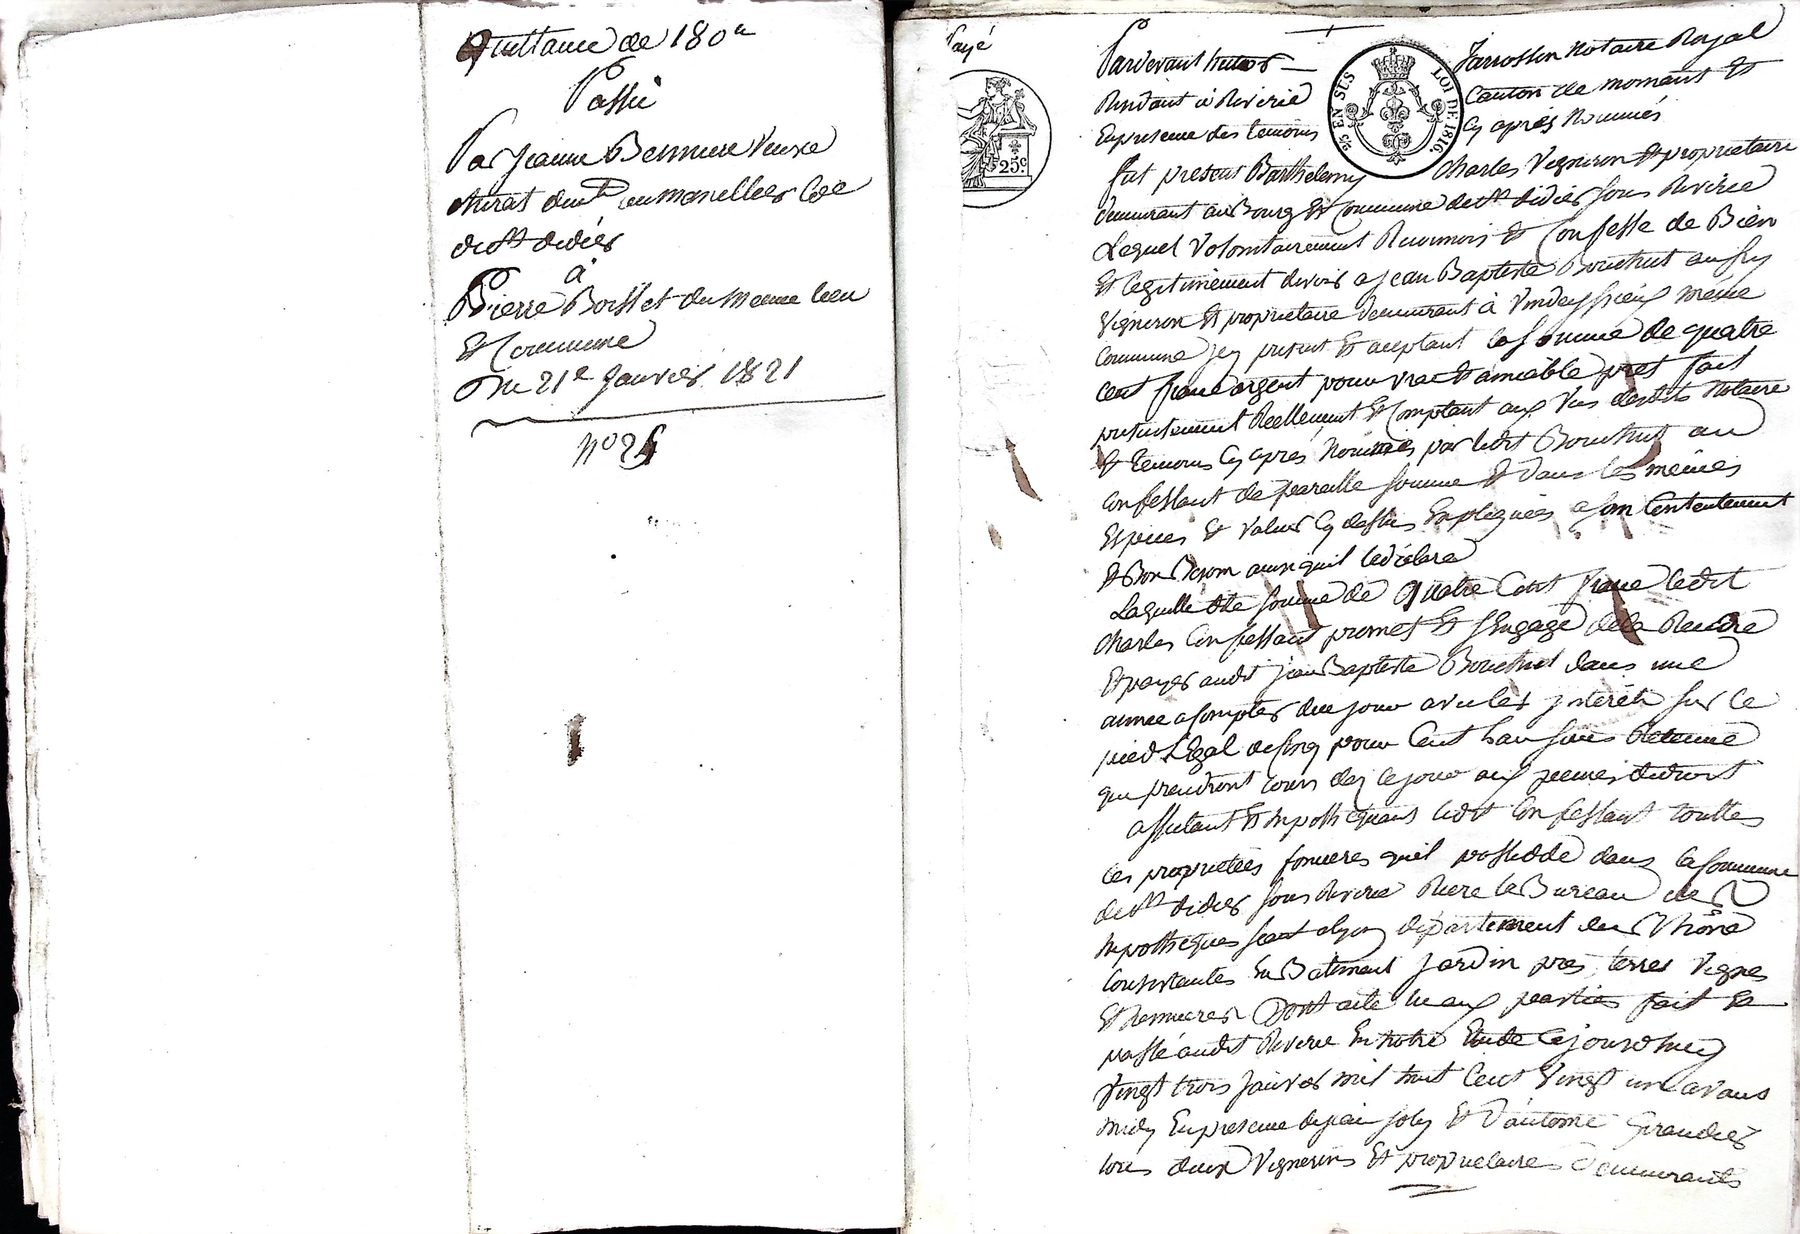 Quittance de 180 ff
Passé
Par Jeanne Venve
Murat demt en Marcellier Coe
de St didier
à
Pierre Boisset du meme lieu
Et Commune
Du 21e Janvier 1821
No 24
Payé
25c.
5/6 EN SUS LOI DE 1816.
Pardevant nous Jarrosson Notaire Royal
Résidant à Riverie Canton de mornant Et
En presence des temoins Cy après Nommés
fut present Barthelemy Charles Vigneron Et proprietaire
demeurant au Bourg Et Commune de St didier sous Riverie
Lequel Volontairement Reconnois Et Confesse de Bien
Et legitimement devoir a Jean Baptiste Bouchut aussy
Vigneron Et proprietaire demeurant à même
Commune jcy present Et aceptant la somme de quatre
cent franc argent pour vrai Et amiable pret fait
presentement Reellement Et Comptant aux Vus desdits Notaire
Et temoins Cy après Nommés par ledit Bouchut au
Confessant de pareille somme Et dans les mêmes
Especes Et valeur Cy dessus Expliquées a son Contentement
Et Bon ainsi quil le déclare
Laquelle dte somme de Quatre Cent franc ledit
Charles Confessant promet Et s'Engage de la Rendre
Et payer audit jean Baptiste Bouchut dans une
année a Compter de ce jour avec les jnterêts sur le
pied Légal de sinq pour Cent sans Retenue
qui prendront cours dez ce jour aux peines du droit
affectant Et hypothequant ledit Confessant touttes
les proprietées foncieres quil possedde dans la Commune
de St didier sous Riverie Riere le Bureau des
hypotheques seant a lyon département du Rhône
Consistantes En Batiment Jardin prés terres Vignes
Et Dont acte lu aux parties fait Et
passé audit Riverie En notre Etude Cejourdhuy
Vingt trois Janvier mil huit Cent Vingt un avant
midy En presence de jean joly Et d'antoine Giraudier
tous deux Vignerons Et proprietaires demeurants